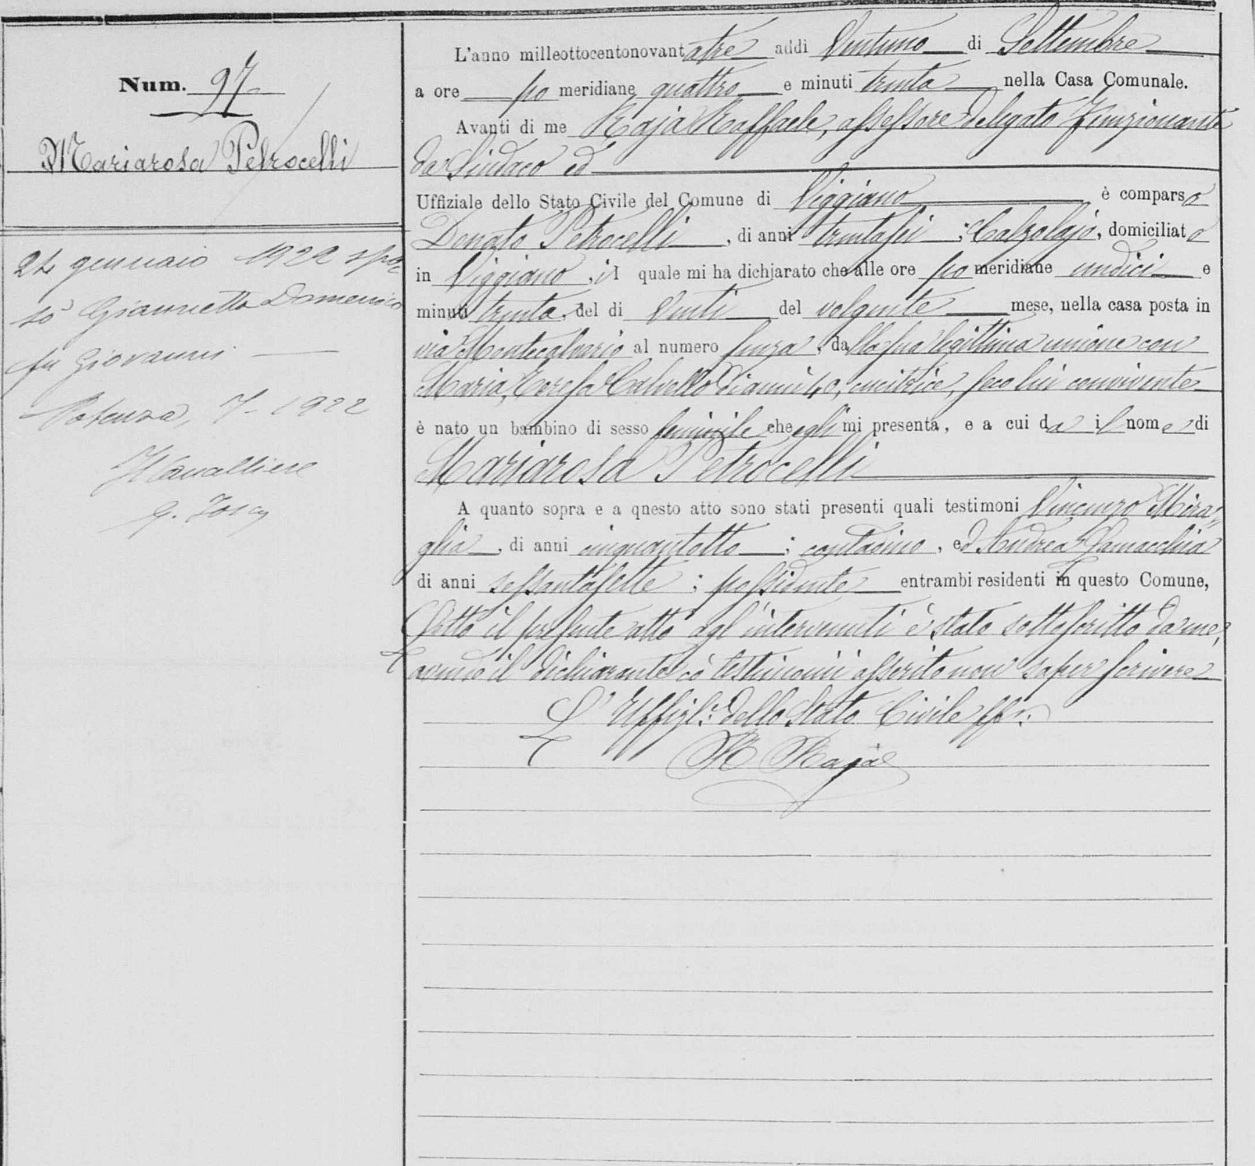 Num. 97
Mariarosa Petrocelli
24 gennaio 1922 spo-
sò Giannetta Domenico
fu Giovanni
Potenza, 7- 1922
L'anno milleottocentonovantatre addi ventuno di Settembre
a ore po meridiane quattro e minuti trenta nella Casa Comunale.
Avanti di me Rajà Raffaele, assessore delegato funzionante
da Sindaco ed
Uffiziale dello Stato Civile del Comune di Viggiano è comparso
Donato Petrocelli, di anni trentasei; Calzolajo, domiciliato
in Viggiano, il quale mi ha dichiarato che alle ore po meridiane undici e
minuti trenta, del dì venti del volgente mese, nella casa posta in
via Montecalvario al numero senza, dalla sua legittima unione con
Maria, Teresa Catvollo d'anni 40, cucitrice, seco lui convivente
è nato un bambino di sesso feminile che egli mi presenta, e a cui dà il nome di
Mariarosa Petrocelli
A quanto sopra e a questo atto sono stati presenti quali testimoni Vincenzo Mira-
glia, di anni cinquantotto; contadino, ed Andrea Lamacchia
di anni sessantasette; possidente entrambi residenti in questo Comune,
Letto il presente atto agl'intervenuti è stato sottoscritto da me,
avendo il dichiarante co' testimoni asserito non saper scrivere
L'Uffizl: dello Stato Civile ff:
R Rajà